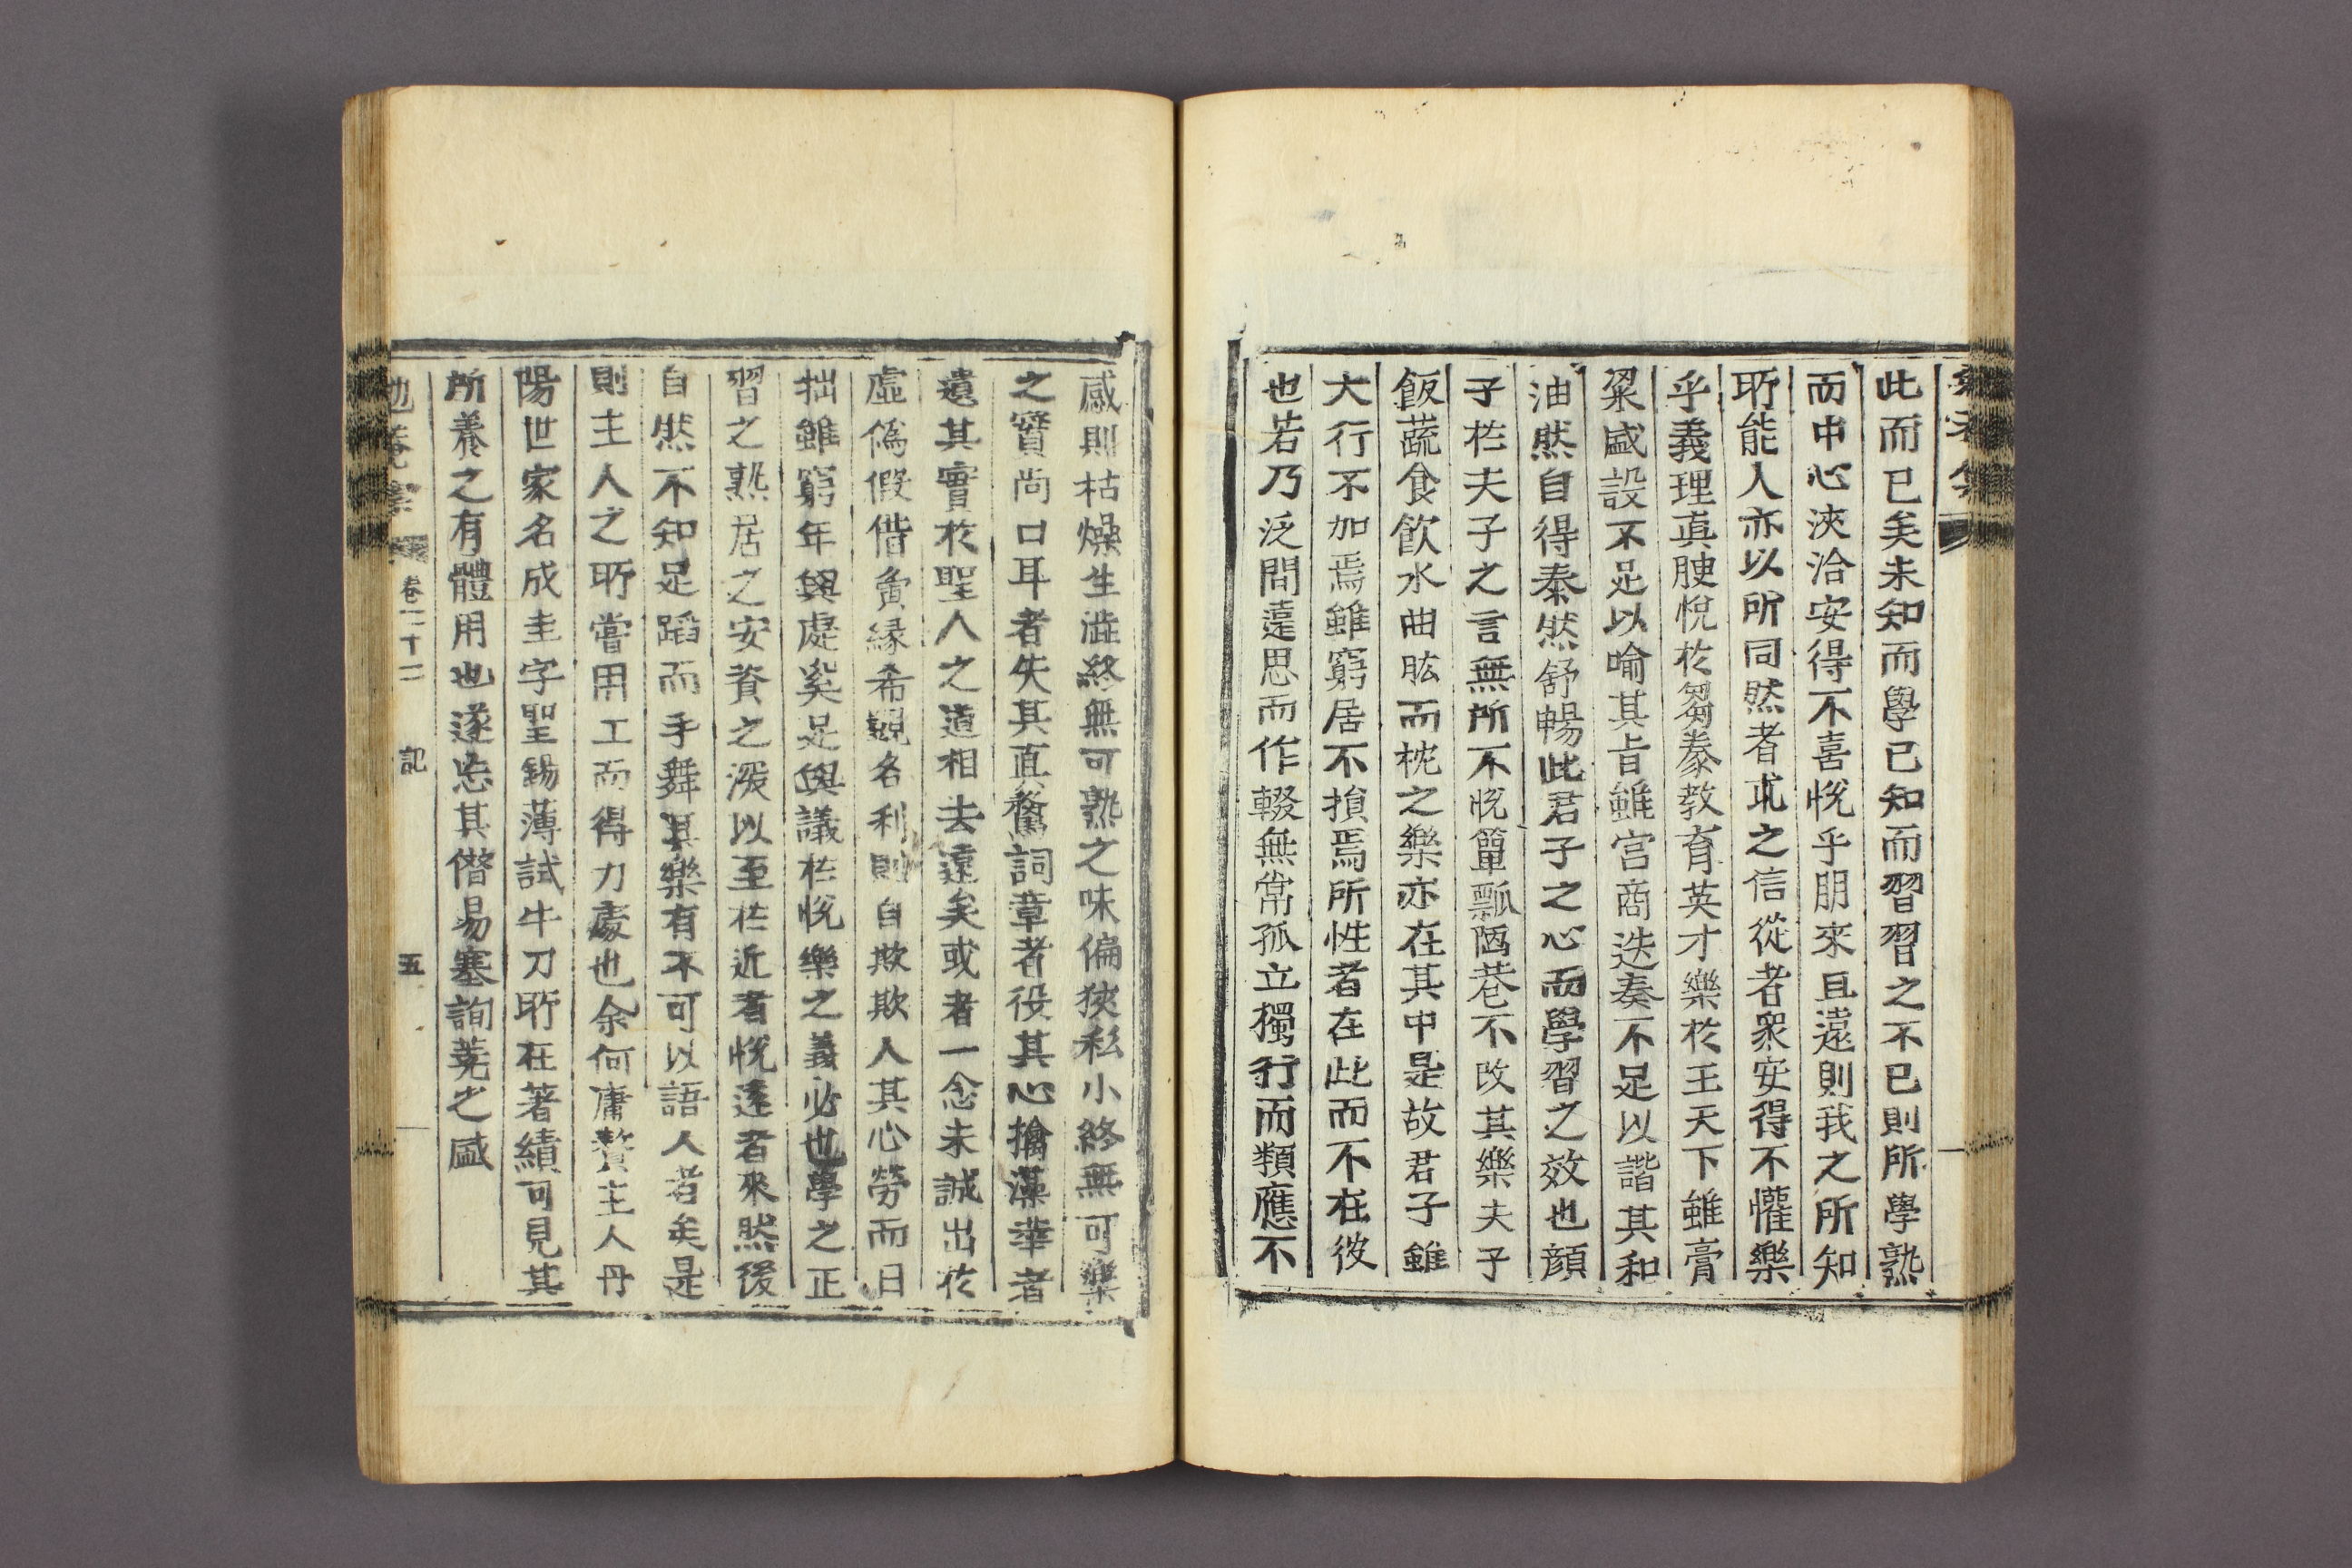 此而已矣未知而學已知而習習之不已則所學熟
而中心浹洽安得不喜悅乎朋來且遠則我之所知
所能人亦以所同然者求之信從者衆安得不懽樂
乎義理眞腴悅於芻豢敎育英才樂於王天下雖膏
粱盛設不足以喩其旨雖宮商迭奏不足以諧其和
油然自得泰然舒暢此君子之心而學習之效也顔
子於夫子之言無所不悅簞瓢陋巷不改其樂夫子
飯蔬食飮水曲肱而枕之樂亦在其中是故君子雖
大行不加焉雖窮居不損焉所性者在此而不在彼
也若乃泛問遠思而作輟無常孤立獨行而類應不
感則枯燥生澁終無可熟之味偏狹私小終無可樂
之實尙口耳者失其眞騖詞章者役其心摛藻華者
遺其實於聖人之道相去遠矣或者一念未誠出於
虛僞假借夤緣希覬名利則自欺欺人其心勞而日
拙雖窮年與處奚足與議於悅樂之義必也學之正
習之熟居之安資之深以至於近者悅遠者來然後
自然不知足蹈而手舞其樂有不可以語人者矣是
則主人之所嘗用工而得力處也余何庸贅主人丹
陽世家名成圭字聖錫薄試牛刀所在著績可見其
所養之有體用也遂忘其僭易塞詢蕘之盛
卷二十二 記 五